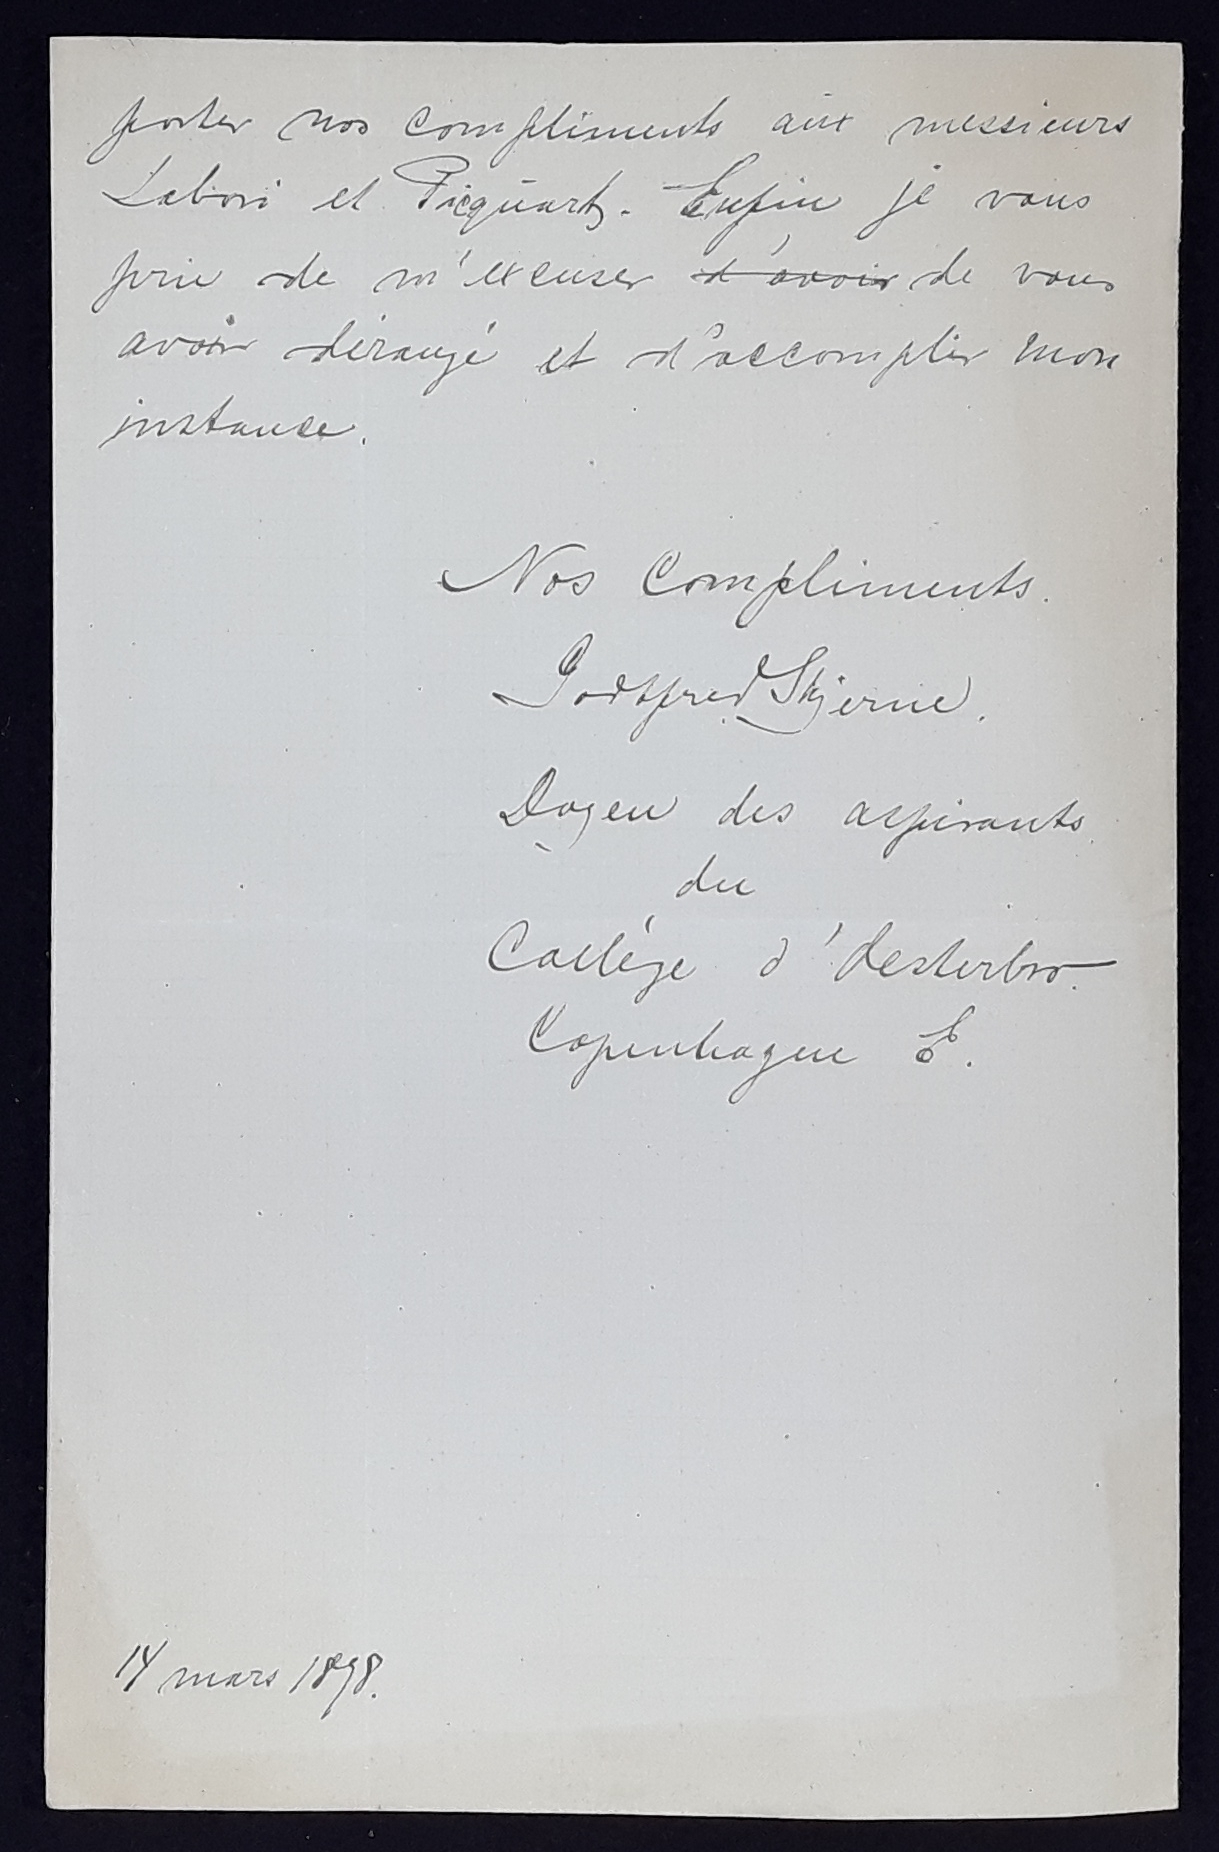 porter nos compliments aux messieurs
Labori et Picquart. Enfin je vous
prie de m'excuser d'avoir de vous
avoir dérangé et d'accomplir mon
instance.
Nos compliments.
Godtfred Skjerne.
Doyen des aspirants
du
Collège d'Oesterbro.
Copenhague E.
14 mars 1898.